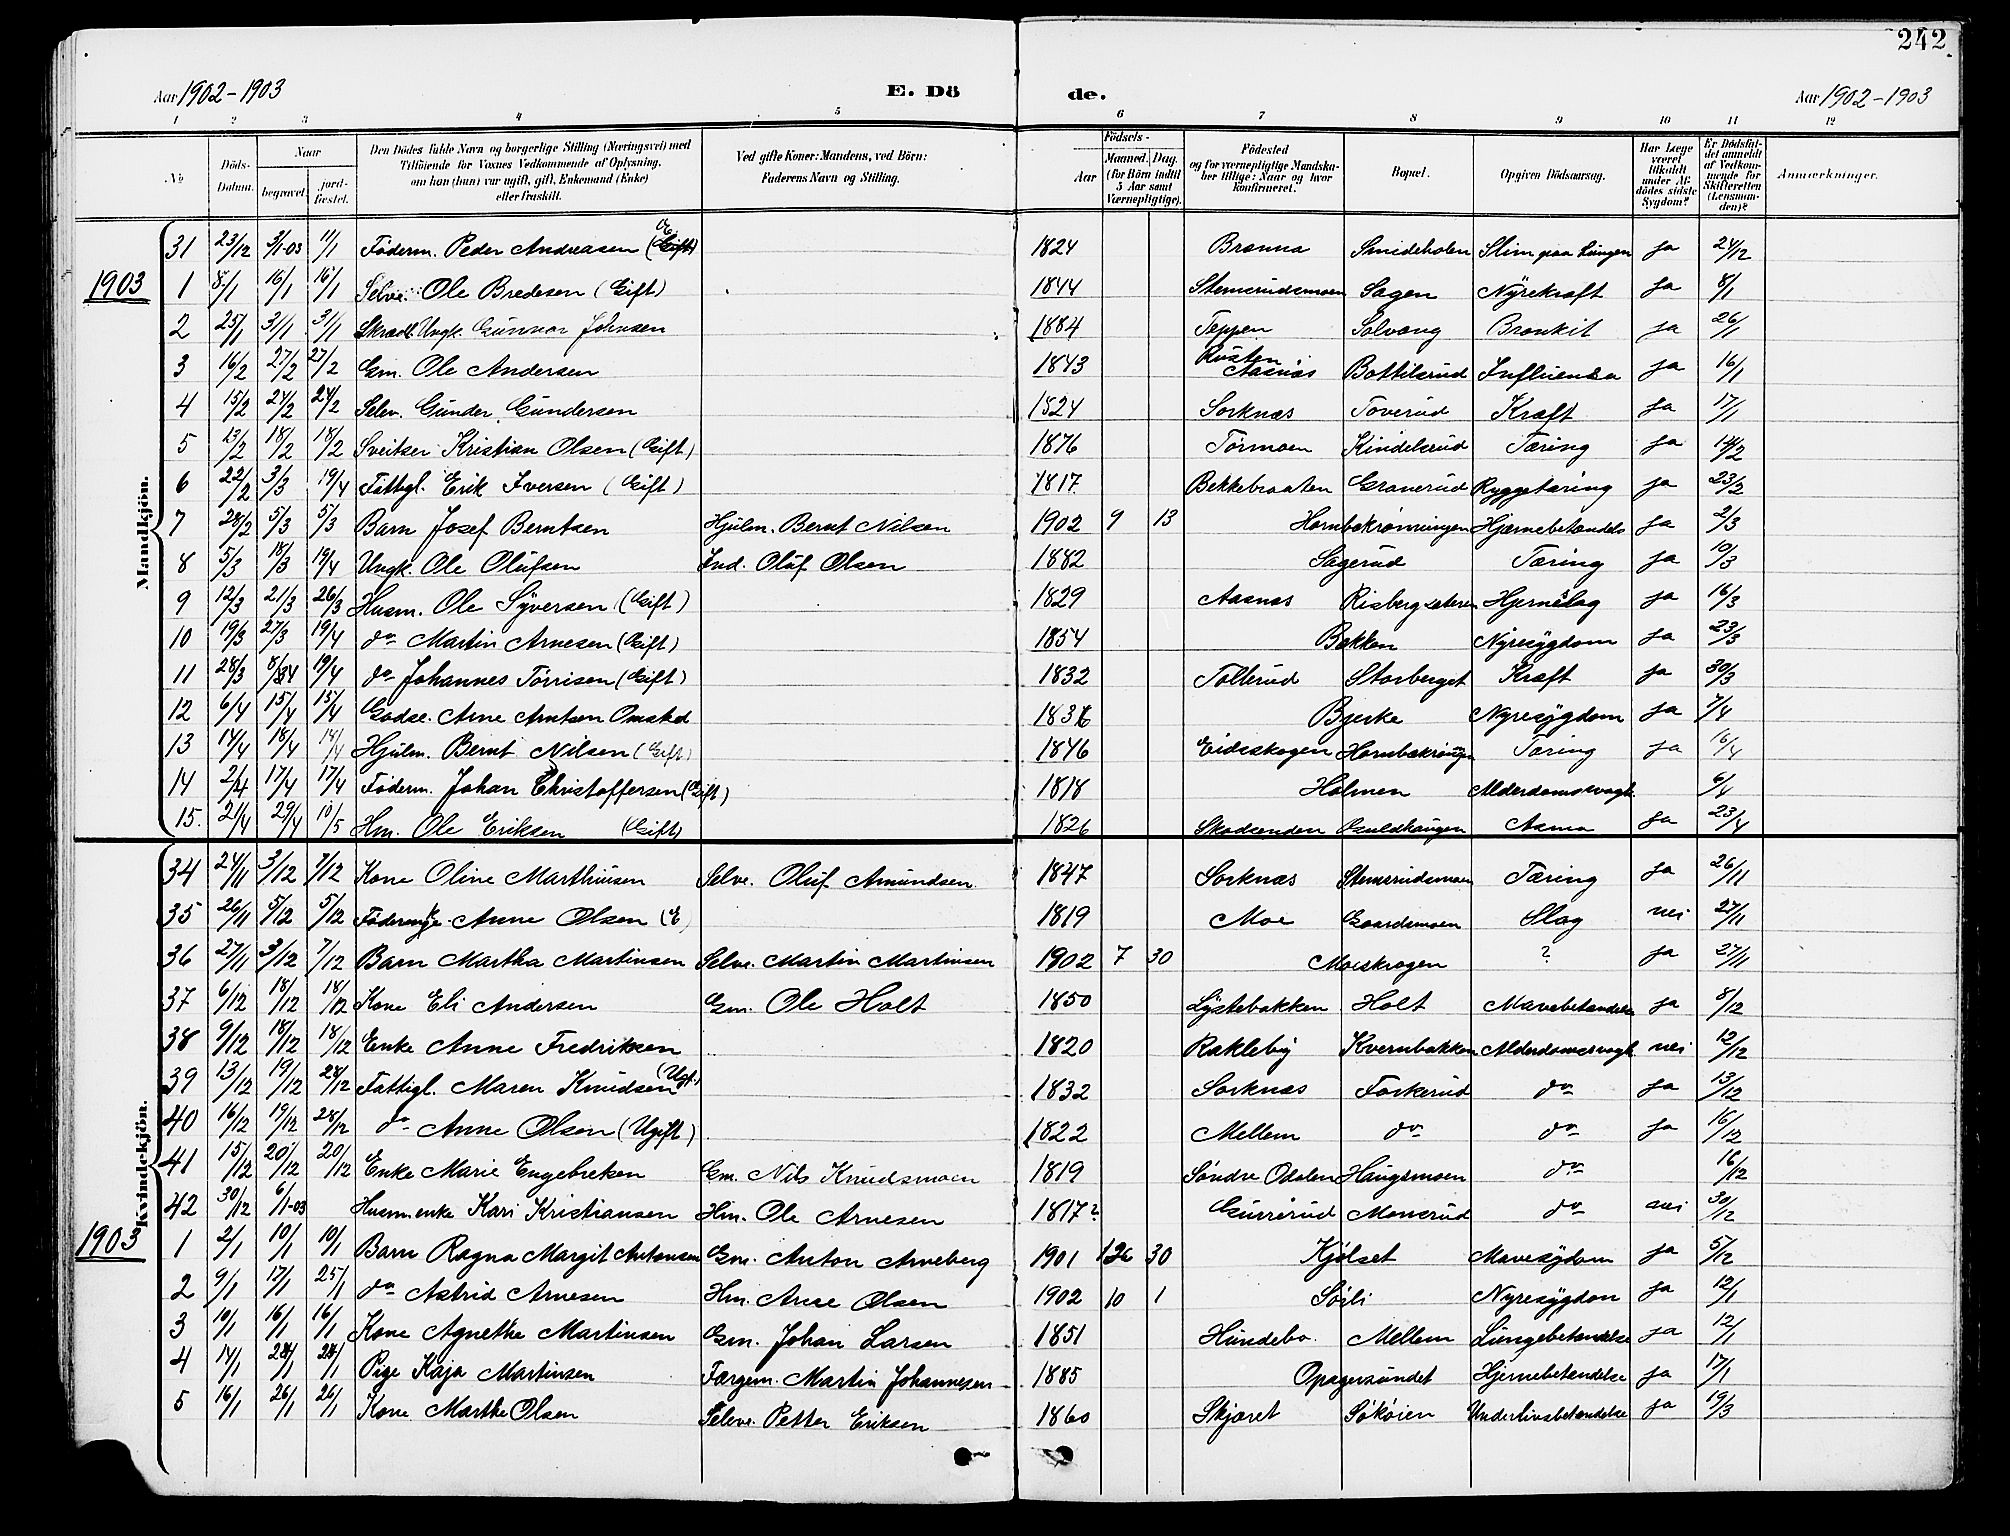 242
Aar 1902-1903 E. Dö de. Aar 1902-1903
1 2 3 4 5 6 7 8 9 10 11 12
No Döds-Datum. Naar begravet. jord-fæstet. Den Dödes fulde Navn og borgerlige Stilling (Næringsvei) med Tilföiende for Voxnes Vedkommende af Oplysning, om han (hun) var ugift, gift, Enkemand (Enke) eller fraskilt. Ved gifte Koner: Mandens, ved Börn: Faderens Navn og Stilling. Födsels- Aar Maaned. Dag. (for Börn indtil 5 Aar samt Værnepligtige). Födested og for værnepligtige Mandska-ber tillige: Naar og hvor konfirmeret. Bopæl. Opgiven Dödsaarsag. Har Læge været tilkaldt under Af-dödes sidste Sygdom? Er Dödsfal-det anmeldt af Vedkom-mende for Skifteretten (Lensman-den)? Anmærkninger.
Mandkjön.
31 23/12 3/1-03 11/1 Föderm. Peder Andreasen (Gift) E 1824 Brænna Smideholen Slim paa Lungen ja 24/12
1903
1 8/1 16/1 16/1 Selve. Ole Bredesen (Gift) 1844 Stemsrudsmoen Sagen Nyrekræft ja 8/1
2 25/1 31/1 31/1 Skrædl. Ungk. Gunnar Johnsen 1884 Teppen Solvang Bronkit ja 26/1
3 16/2 27/2 27/2 Gm. Ole Andersen 1843 Rusten Aasnæs Bottilsrud Influensa ja 16/1
4 15/2 24/2 24/2 Selv. Gunder Gundersen 1824 Sorknæs Toverud Kræft ja 17/1
5 13/2 18/2 18/2 Sveitser Kristian Olsen (Gift) 1876 Tørmoen Kindelsrud Tæring ja 14/2
6 22/2 3/3 19/4 Fattigl. Erik Iversen (Gift) 1817 Bekkebraaten Granerud Ryggetæring ja 23/2
7 28/2 5/3 5/3 Barn Josef Berntsen Hjulm. Bernt Nilsen 1902 9 13 Hornbækrønningen Hjærnebetændels ja 2/3
8 5/3 18/3 19/4 Ungk. Ole Olufsen Ind. Oluf Olsen 1882 Sagerud Tæring ja 10/3
9 12/3 21/3 26/3 Husm. Ole Syversen (Gift) 1829 Aasnæs Risbergseteren Hjerneslag ja 16/3
10 19/3 27/3 19/4 do Martin Arnesen (Gift) 1854 Bakken Nyresygdom ja 23/3
11 28/3 8/4 19/4 do Johannes Tørrisen (Gift) 1832 Tollerud Storberget Kræft ja 30/3
12 6/4 15/4 15/4 Godse. Arne Arntsen Omsted 1836 Bjerke Nyresygdom ja 7/4
13 14/4 18/4 18/4 Hjulm. Bernt Nilsen (Gift) 1846 Eidsskogen Hornbækrønngn Tæring ja 16/4
14 2/4 17/4 17/4 Föderm. Johan Christoffersen (Gift) 1818 Holmen Alderdomssvagh. 6/4
15. 21/4 29/4 10/5 Hm. Ole Eriksen (Gift) 1826 Skadsenden Guldhaugen Asma ja 23/4
Kvindekjön.
34 24/11 3/12 7/12 Kone Oline Marthinsen Selve. Oluf Amundsen 1847 Sorknæs Stemsrudsmoen Tæring ja 26/11
35 26/11 5/12 5/12 Föderenke Anne Olsen (E) 1819 Moe Gaardsmoen Slag nei 27/11
36 27/11 3/12 7/12 Barn Martha Martinsen Selve. Martin Martinsen 1902 7 30 Moeskogen ? ja 27/11
37 6/12 18/12 18/12 Kone Eli Andersen Gm. Ole Holt 1850 Lystebakken Holt Mavebetændelse ja 8/12
38 9/12 18/12 18/12 Enke Anne Fredriksen 1820 Rakleby Kvernbakken Alderdomssvagh nei 12/12
39 13/12 19/12 28/12 Fattigl. Maren Knudsen (Ugt.) 1832 Sorknæs Forkerud do ja 13/12
40 16/12 19/12 28/12 do Anne Olsen (Ugift) 1822 Mellem do do ja 16/12
41 15/12 20/12 20/12 Enke Marie Engebretsen Gm. Nils Knudsmoen 1819 Søndre Odalen Haugsmoen do 16/12
42 30/12 6/1-03 Husm.enke Kari Kristiansen Hm. Ole Arnesen 1817? Gurrerud Monsrud do nei 30/12
1903
1 2/1 10/1 10/1 Barn Ragna Margit Antonsen Gm. Anton Arneberg 1901 12 30 Kjølset Mavesygdom ja 5/12
2 9/1 17/1 25/1 do Astrid Arnesen Hm. Arne Olsen 1902 10 1 Søsli Nyresygdom ja 12/1
3 10/1 16/1 16/1 Kone Agnethe Martinsen Gm. Johan Larsen 1851 Hundebo. Mellem Lungebetændelse ja 12/1
4 14/1 24/1 24/1 Pige Kaja Martinsen Færgem. Martin Johannesen 1885 Opagersundet Hjernebetændelse ja 17/1
5 16/1 26/1 26/1 Kone Marthe Olsen Selve. Petter Eriksen 1860 Skjæret Søkøien Underlivsbetændelse ja 19/3